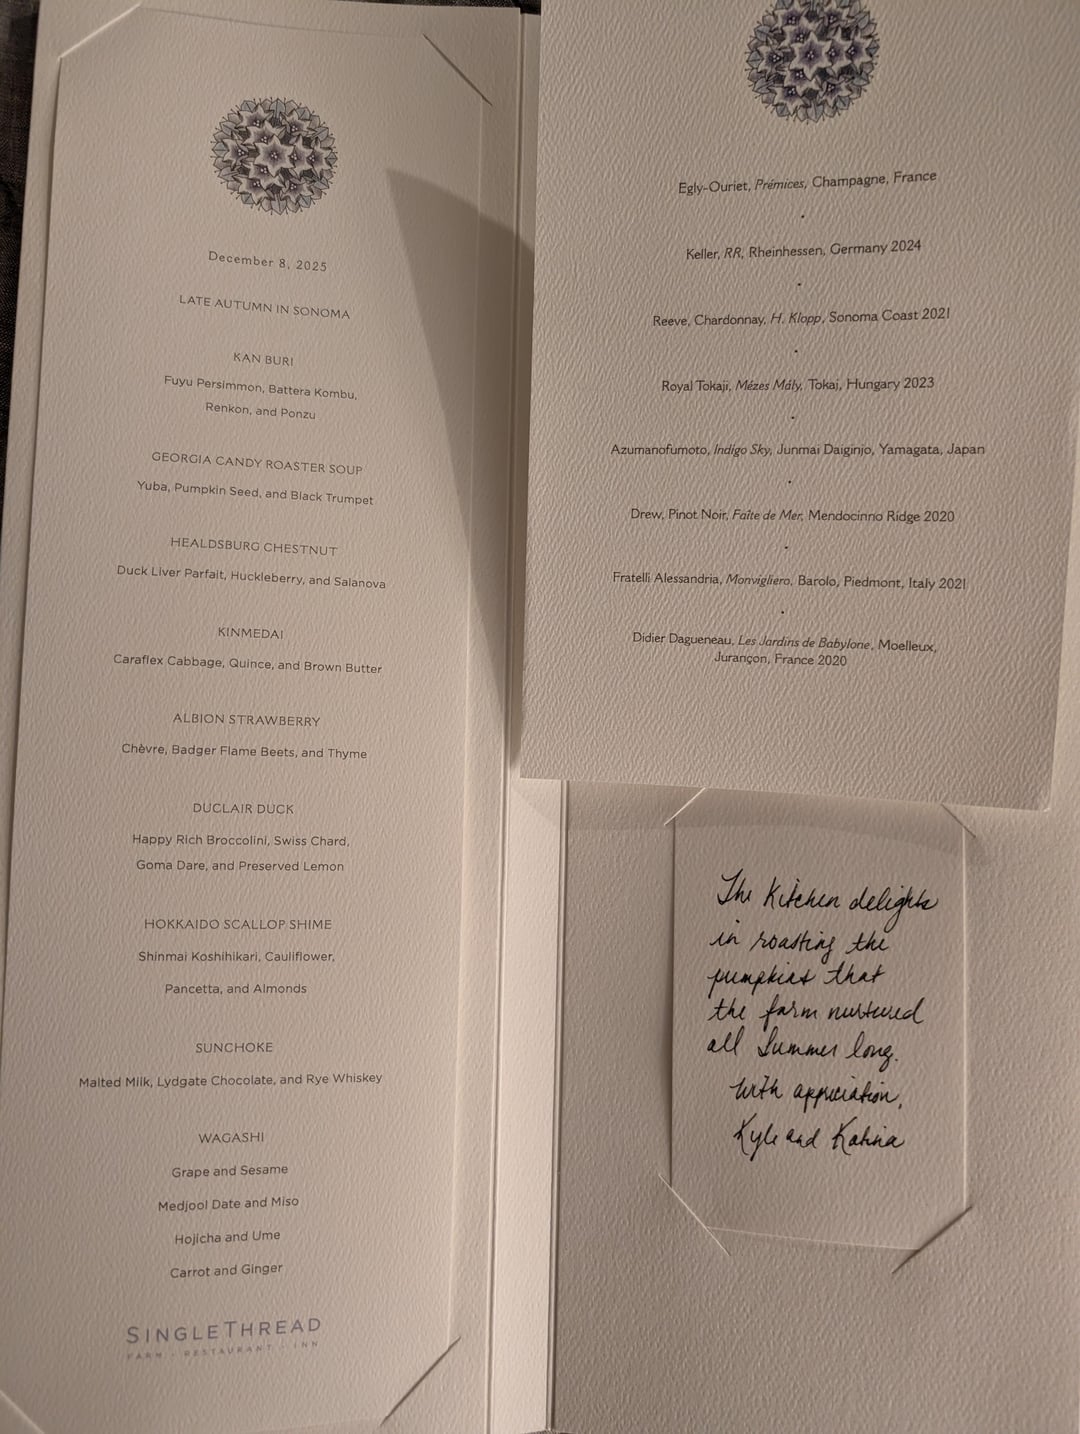 December 8, 2025
LATE AUTUMN IN SONOMA
KAN BURI
Fuyu Persimmon, Battera Kombu,
Renkon, and Ponzu
GEORGIA CANDY ROASTER SOUP
Yuba, Pumpkin Seed, and Black Trumpet
HEALDSBURG CHESTNUT
Duck Liver Parfait, Huckleberry, and Salanova
KINMEDAI
Caraflex Cabbage, Quince, and Brown Butter
ALBION STRAWBERRY
Chèvre, Badger Flame Beets, and Thyme
DUCLAIR DUCK
Happy Rich Broccolini, Swiss Chard,
Goma Dare, and Preserved Lemon
HOKKAIDO SCALLOP SHIME
Shinmai Koshihikari, Cauliflower,
Pancetta, and Almonds
SUNCHOKE
Malted Milk, Lydgate Chocolate, and Rye Whiskey
WAGASHI
Grape and Sesame
Medjool Date and Miso
Hojicha and Ume
Carrot and Ginger
SINGLETHREAD
FARM - RESTAURANT - INN
Egly-Ouriet, Prémices, Champagne, France
Keller, RR, Rheinhessen, Germany 2024
Reeve, Chardonnay, H. Klopp, Sonoma Coast 2021
Royal Tokaji, Mézes Mály, Tokaj, Hungary 2023
Azumanofumoto, Indigo Sky, Junmai Daiginjo, Yamagata, Japan
Drew, Pinot Noir, Faîte de Mer, Mendocinno Ridge 2020
Fratelli Alessandria, Monvigliero, Barolo, Piedmont, Italy 2021
Didier Dagueneau, Les Jardins de Babylone, Moelleux,
Jurançon, France 2020
The Kitchen delights
in roasting the
pumpkins that
the farm nurtured
all Summer long.
With appriciation,
Kyle and Katina